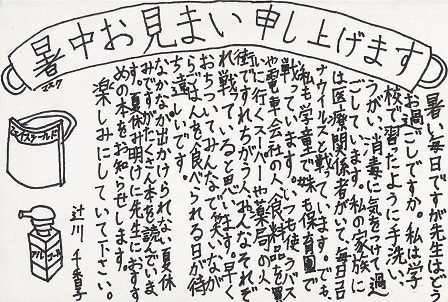 暑中お見まい申し上げます
暑い毎日ですが先生はどう
お過ごしですか。私は学
校で習ったように手洗い、
うがい、消毒に気をつけて過
ごしています。私の家族に
は医療関係者がいて毎日コロ
ナウイルスと戦っています。でも、
私も学童で妹も保育園で
戦っています。いつも使うバス
や電車会社の人、食料品を買
いに行くスーパーや薬局の人、
街ですれちがう人、みんなそれぞ
れ戦っていると思います。早く
おちついてみんなで笑いなが
らごはんを食べられる日が待
ち遠しいです。
なかなか出かけられない夏休
みですがたくさん本を読んでいま
す。夏休み明けに先生におすす
めの本をお知らせします。
楽しみにしていて下さい。
辻川千香子
マスク
フェイスシールド
アルコール